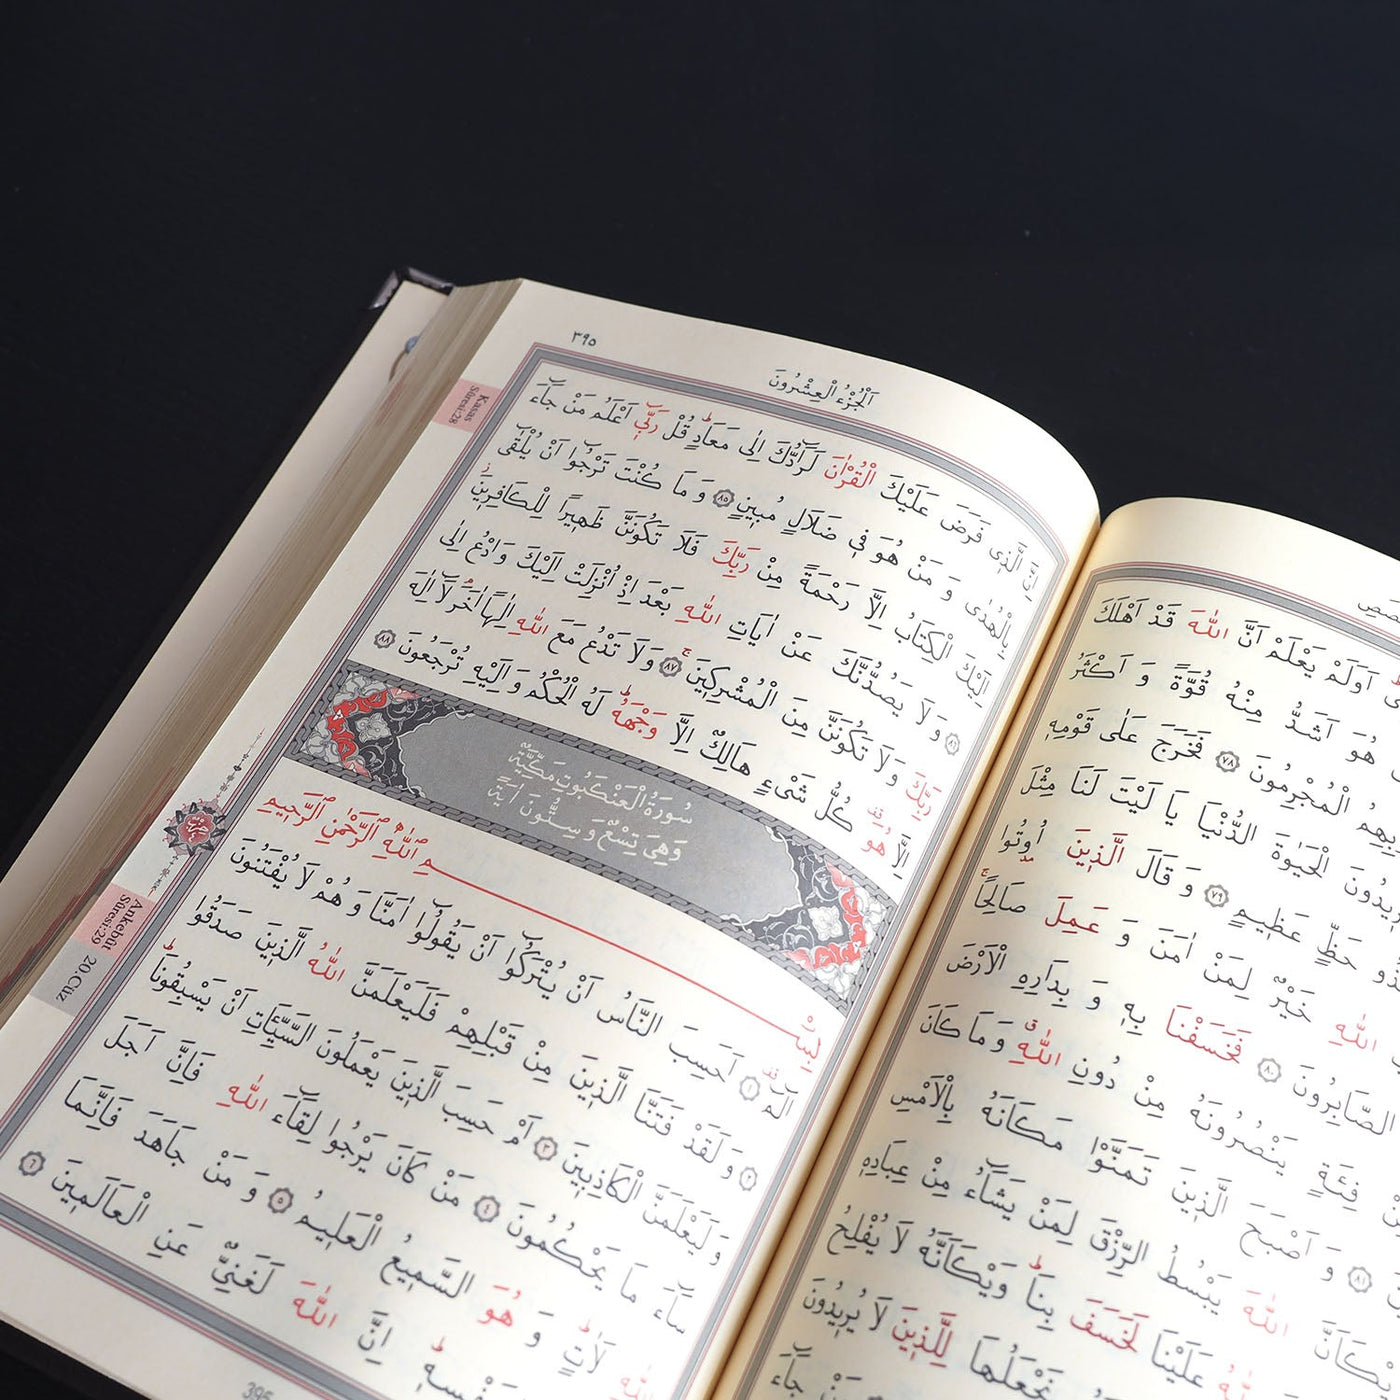 اَوَلَمْ يَعْلَمْ اَنَّ اللّٰهَ قَدْ اَهْلَكَ
هُوَ اَشَدُّ مِنْهُ قُوَّةً وَ اَكْثَرُ
الْمُجْرِمُونَ ٧٨ فَخَرَجَ عَلٰى قَوْمِهٖ
الْحَيٰوةَ الدُّنْيَا يَا لَيْتَ لَنَا مِثْلَ
حَظٍّ عَظٖيمٍ ٧٩ وَ قَالَ الَّذٖينَ اُوتُوا
اللّٰهِ خَيْرٌ لِمَنْ اٰمَنَ وَ عَمِلَ صَالِحًا
الصَّابِرُونَ ٨٠ فَخَسَفْنَا بِهٖ وَ بِدَارِهِ الْاَرْضَ
فِئَةٍ يَنْصُرُونَهُ مِنْ دُونِ اللّٰهِ وَمَا كَانَ
٨١ وَ اَصْبَحَ الَّذٖينَ تَمَنَّوْا مَكَانَهُ بِالْاَمْسِ
اللّٰهَ يَبْسُطُ الرِّزْقَ لِمَنْ يَشَٓاءُ مِنْ عِبَادِهٖ
عَلَيْنَا لَخَسَفَ بِنَا وَيْكَاَنَّهُ لَا يُفْلِحُ
نَجْعَلُهَا لِلَّذٖينَ لَا يُرٖيدُونَ
جَٓاءَ
اَلْجُزْءُ الْعِشْرُونَ
٣٩٥
اِنَّ الَّذٖى فَرَضَ عَلَيْكَ الْقُرْاٰنَ لَرَٓادُّكَ اِلٰى مَعَادٍ قُلْ رَبّٖٓى اَعْلَمُ مَنْ جَٓاءَ
بِالْهُدٰى وَ مَنْ هُوَ فٖى ضَلَالٍ مُبٖينٍ ٨٥ وَ مَا كُنْتَ تَرْجُٓوا اَنْ يُلْقٰٓى
اِلَيْكَ الْكِتَابُ اِلَّا رَحْمَةً مِنْ رَبِّكَ فَلَا تَكُونَنَّ ظَهٖيرًا لِلْكَافِرٖينَ
٨٦ وَ لَا يَصُدُّنَّكَ عَنْ اٰيَاتِ اللّٰهِ بَعْدَ اِذْ اُنْزِلَتْ اِلَيْكَ وَادْعُ اِلٰى
رَبِّكَ وَلَا تَكُونَنَّ مِنَ الْمُشْرِكٖينَ ٨٧ وَ لَا تَدْعُ مَعَ اللّٰهِ اِلٰهًا اٰخَرَ لَٓا اِلٰهَ
اِلَّا هُوَ كُلُّ شَیْءٍ هَالِكٌ اِلَّا وَجْهَهُ لَهُ الْحُكْمُ وَ اِلَيْهِ تُرْجَعُونَ ٨٨
سُورَةُ الْعَنْكَبُوتِ مَكِّيَّةٌ
وَهِیَ تِسْعٌ وَ سِتُّونَ اٰيَةً
بِسْمِ اللّٰهِ الرَّحْمٰنِ الرَّحٖيمِ
الٓمٓ ١ اَحَسِبَ النَّاسُ اَنْ يُتْرَكُٓوا اَنْ يَقُولُٓوا اٰمَنَّا وَ هُمْ لَا يُفْتَنُونَ
٢ وَ لَقَدْ فَتَنَّا الَّذٖينَ مِنْ قَبْلِهِمْ فَلَيَعْلَمَنَّ اللّٰهُ الَّذٖينَ صَدَقُوا
وَ لَيَعْلَمَنَّ الْكَاذِبٖينَ ٣ اَمْ حَسِبَ الَّذٖينَ يَعْمَلُونَ السَّيِّـَٔاتِ اَنْ يَسْبِقُونَا
سَٓاءَ مَا يَحْكُمُونَ ٤ مَنْ كَانَ يَرْجُوا لِقَٓاءَ اللّٰهِ فَاِنَّ اَجَلَ
اللّٰهِ لَاٰتٍ وَ هُوَ السَّمٖيعُ الْعَلٖيمُ ٥ وَ مَنْ جَاهَدَ فَاِنَّمَا
لِنَفْسِهٖ اِنَّ اللّٰهَ لَغَنِیٌّ عَنِ الْعَالَمٖينَ ٦
Kasas
Sûresi:28
حزب
Ankebût
Sûresi:29
20.Cüz
395